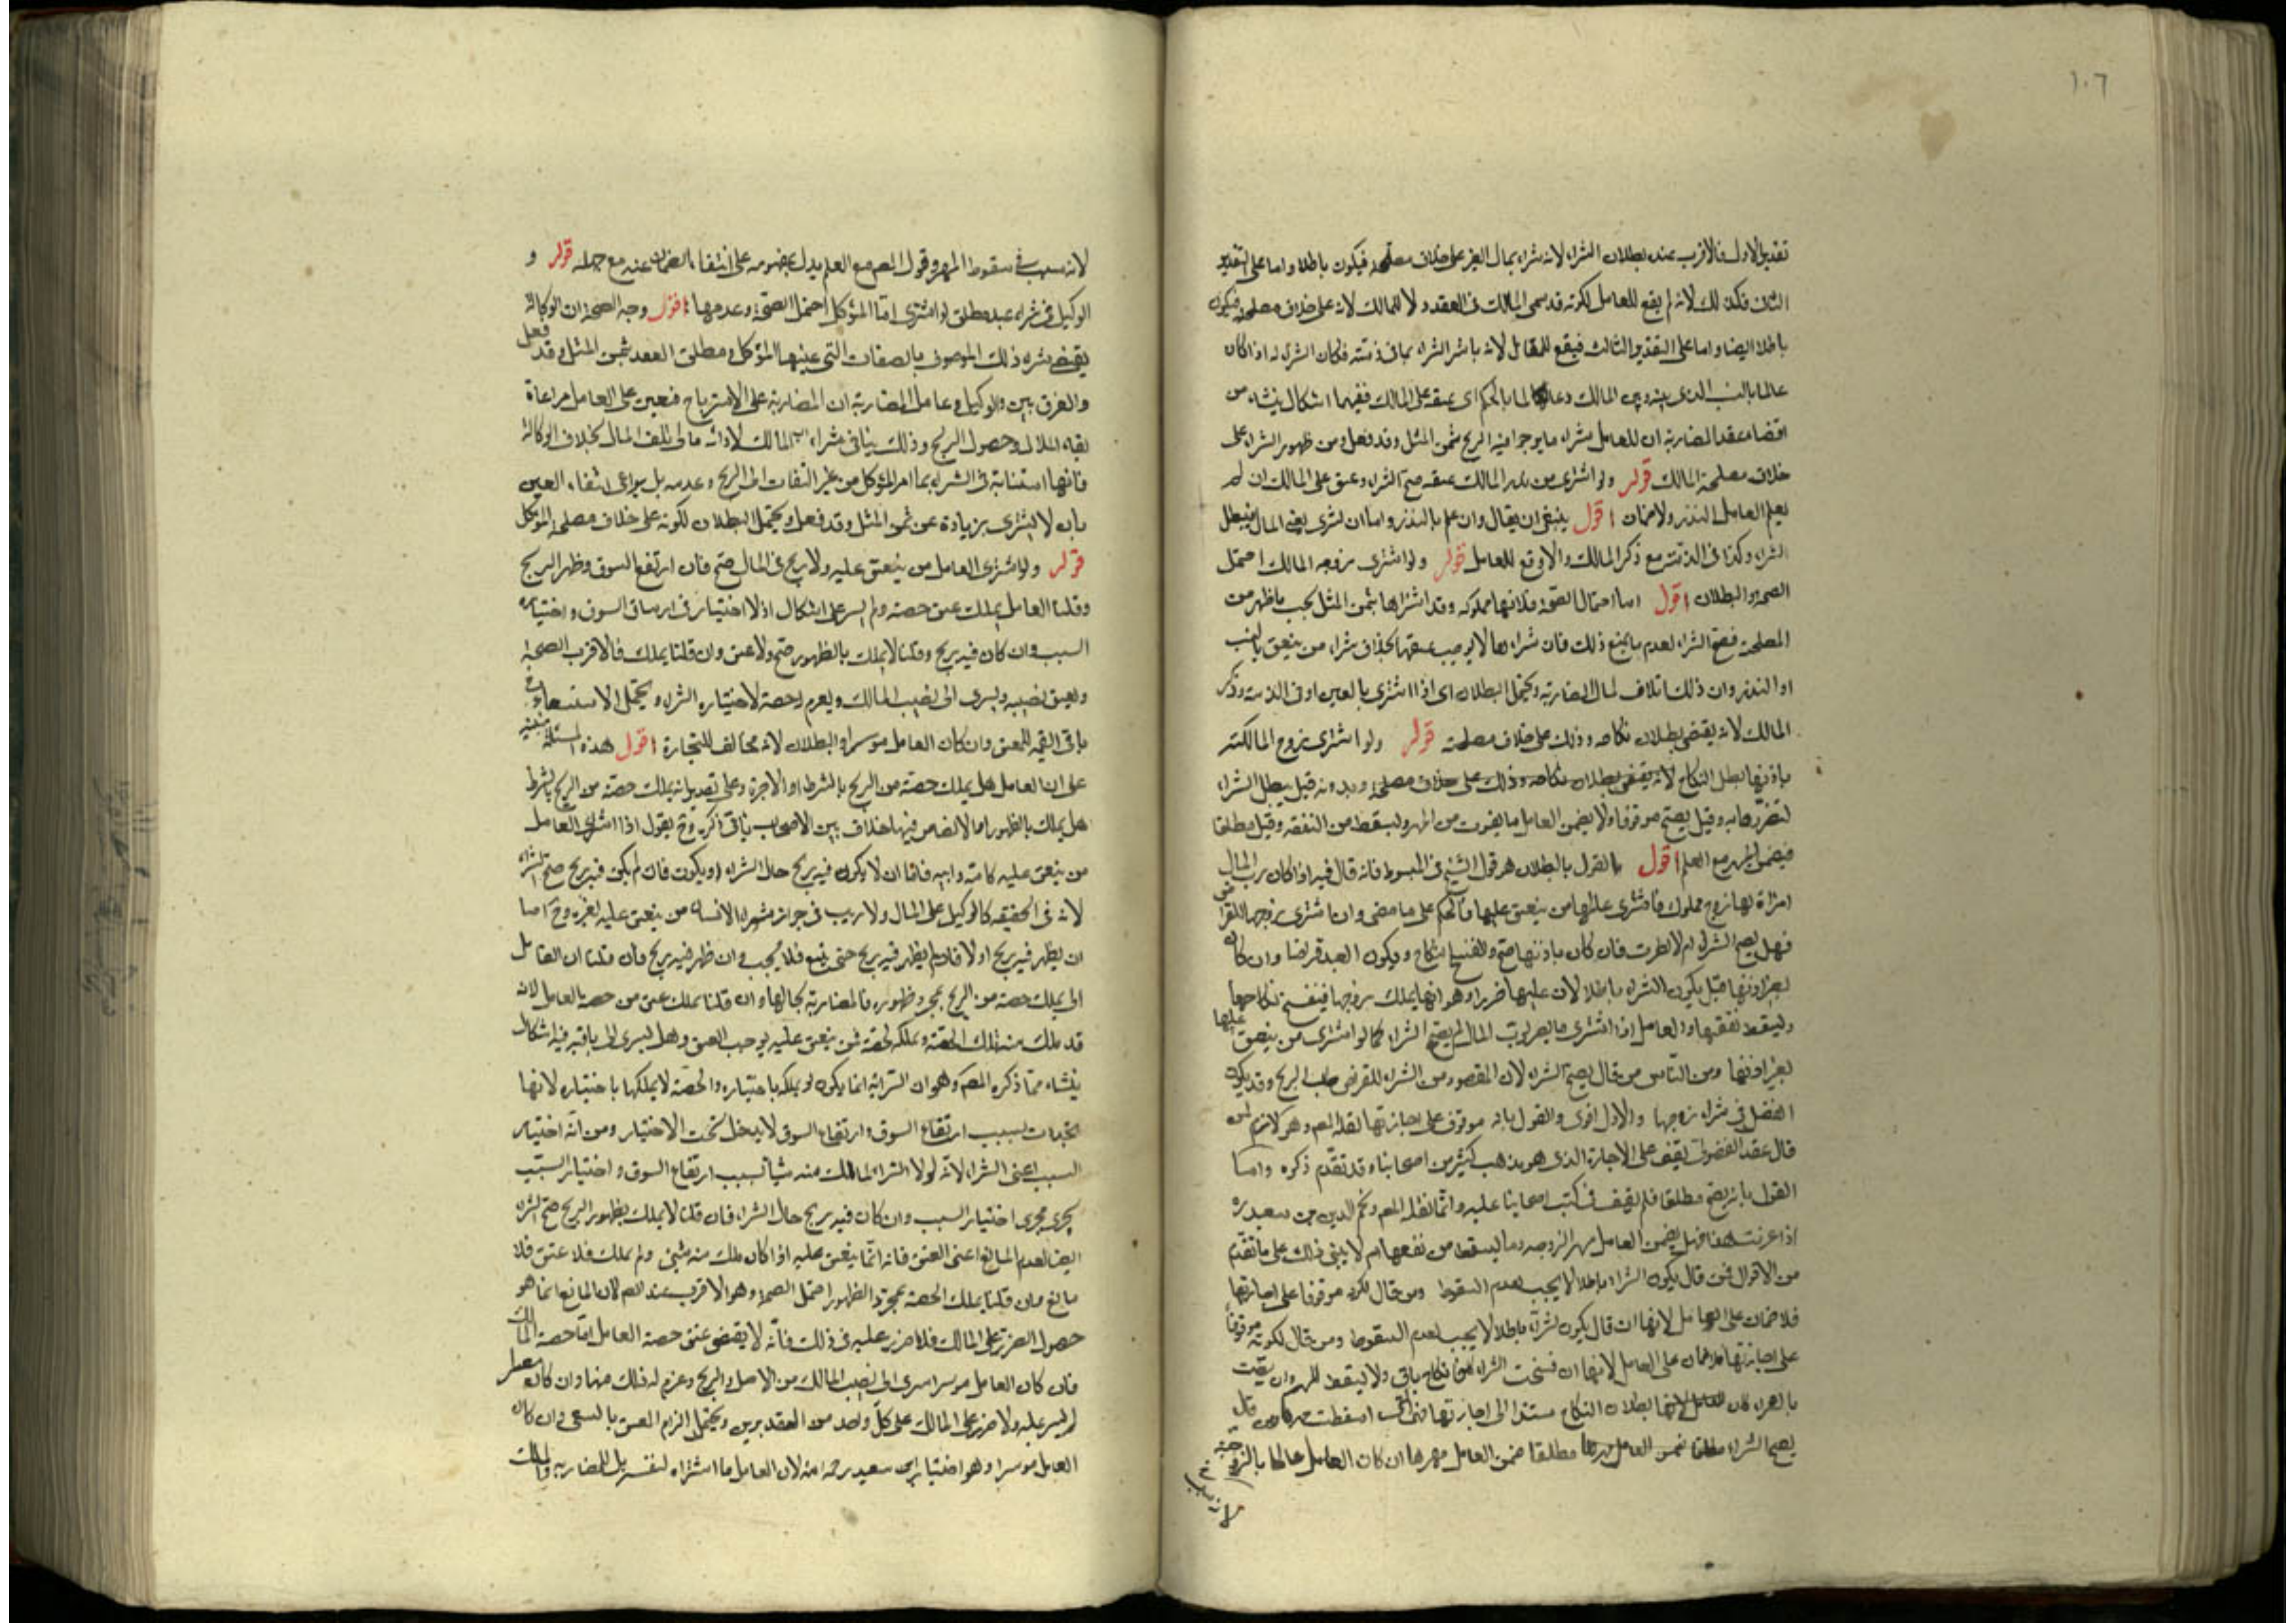 ١٠٦
تقدير الاول فالاقرب عنده بطلان الشراء لانه شراء بمال الغير على خلاف مصلحته فيكون باطلا واما على التقدير
الثانى فكذلك لانه لم يقع للعامل لكونه قد سمى المالك فى العقد ولا للمالك لانه على خلاف مصلحته فيكون
باطلا ايضا واما على التقدير الثالث فيقع للعامل لانه باشر الشراء بما فى ذمته فكان الشراء له اذا كان
عالما بالنسب الذى بينه وبين المالك وعالما بالحكم اى عتقه على المالك ففيهما اشكال ينشاء من
اقتضاء عقد المضاربة ان للعامل شراء ما يوجد فيه الربح بثمن المثل وقد فعل ومن ظهور الشراء على
خلاف مصلحة المالك قوله ولو اشترى من نذر المالك عتقه صح الشراء وعتق على المالك ان لم
يعلم العامل النذر ولا ضمان اقول ينبغى ان يقال وان علم بالنذر واما ان يشترى بعين المال فيبطل
الشراء وكذا فى الذمة مع ذكر المالك والا وقع للعامل قوله ولو اشترى زوجه المالك احتمل
الصحة والبطلان اقول اما احتمال الصحة فلانها مملوكه وقد اشتراها بثمن المثل بحسب ما ظهر من
المصلحة فصح الشراء لعدم ما يمنع ذلك فان شراءها لا يوجب عتقها بخلاف شراء من ينعتق بالنسب
او النذر وان ذلك اتلاف لمال المضاربة ويحتمل البطلان اى اذا اشترى بالعين او فى الذمة وذكر
المالك لانه يقتضى بطلان نكاحه وذلك على خلاف مصلحته قوله ولو اشترى زوج المالكة
باذنها بطل النكاح لانه يقتضى بطلان نكاحه وذلك على خلاف مصلحته وبدونه قيل يبطل الشراء
لتضررها به وقيل يصح موقوفا ولا يضمن العامل ما يفوت من المهر ويسقط من النفقة وقيل مطلقا
فيضمن المهر مع العلم اقول القول بالبطلان هو قول الشيخ فى المبسوط فانه قال فيه اذا كان رب المال
امراة لها زوج مملوك فاشترى عاملها من ينعتق عليها فالحكم على ما مضى وان اشترى زوجها للقراض
فهل يصح الشراء ام لا نظرت فان كان باذنها صح وانفسخ النكاح ويكون العبد قراضا وان كان
بغير اذنها قيل يكون الشراء باطلا لان عليها ضررا وهو انها يملك زوجها فينفسخ نكاحها
ويسقط نفقتها والعامل اذا اشترى ما يضر برب المال لم يصح الشراء كما لو اشترى من ينعتق عليها
بغير اذنها ومن الناس من قال يصح الشراء لان المقصود من الشراء للقراض طلب الربح وقد يكون
الفضل فى شراء زوجها والاول اقوى والقول بانه موقوف على اجازتها نقله المص وهو لازم لمن
قال عقد الفضولى يقف على الاجازة الذى هو مذهب كثير من اصحابنا وقد تقدم ذكره واما
القول بانه يصح مطلقا فلم يقف فى كتب اصحابنا عليه وانما نقله المص ونجم الدين بن سعيد ره
اذا عرفت هذا فهل يضمن العامل مهر الزوجه وما يسقط من نفعها ام لا يبنى ذلك على ما تقدم
من الاقوال فمن قال يكون الشراء باطلا لا يجب لعدم السقوط ومن قال لكونه موقوفا على اجازتها
فلا ضمان على العامل لانها ان قال يكون الشراء باطلا لا يجب لعدم السقوط ومن قال لكونه موقوفا
على اجازتها فلا ضمان على العامل لانها ان فسخت الشراء فمن نكاح باقى ولا يسقط المهر وان بقيت
بطلان النكاح مستندا الى اجازتها فهى التى اسقطت
يصح الشراء مطلقا ضمن العامل مهرها ان كان العامل عالما بالزوجية
لانه سبب
لانه سبب فى سقوط المهر وقول المص مع العلم يدل بمفهومه على انتفاء الضمان عنه مع جهله قوله و
الوكيل فى شراء عبد مطلق لو اشترى ابا المؤكل احتمل الصحة وعدمها اقول وجه الصحة ان الوكالة
يقتضى شراء ذلك الموصوف بالصفات التى عينها المؤكل ومطلق العقد بثمن المثل وقد فعل
والفرق بين الوكيل وعامل المضاربة ان المضاربة على الاسترباح فتعين على العامل مراعاة
بقاء المال وحصول الربح وذلك ينافى شراء اب المالك لادائه الى تلف المال بخلاف الوكالة
فانها استنابة فى الشراء بما امر المؤكل من غير التفات الى الربح وعدمه بل يراعى انتفاء الغبن
بان لا يشترى بزيادة عن ثمن المثل وقد فعل ويحتمل البطلان لكونه على خلاف مصلحة المؤكل
قوله ولو اشترى العامل من ينعتق عليه ولا ربح فى المال صح فان ارتفع السوق وظهر الربح
وقلنا العامل يملك عتق حصته ولم يسر على اشكال اذ لا اختيار فى ارتفاع السوق واختيار
السبب وان كان فيه ربح وقلنا لا يملك بالظهور صح ولا عتق وان قلنا يملك فالاقرب الصحة
وعتق نصيبه ويسرى الى نصيب المالك ويغرم حصة لاختياره الشراء ويحتمل الاستسعاء فى
باقى القيمه للعتق وان كان العامل موسرا والبطلان لانه مخالف للتجارة اقول هذه المسئلة مبنيه
على ان العامل هل يملك حصته من الربح بالشرط او الاجرة وعلى تقدير انه يملك حصته من الربح بالشرط
هل يملك بالظهور ام لا فيها خلاف بين الاصحاب ياتى ذكره وح يقول اذا اشترى العامل
من ينعتق عليه كامه وابيه فاما ان لا يكون فيه ربح حال الشراء او يكون فان لم يكن فيه ربح صح الشراء
لانه فى الحقيقه كالوكيل على المال ولا ريب فى جواز شراء الانسان من ينعتق عليه لغيره وح اما
ان يظهر فيه ربح او لا فان لم يظهر فيه ربح حتى بيع فلا يجب وان ظهر فيه ربح فان قلنا ان العامل
لا يملك حصته من الربح بمجرد ظهوره فالمضاربة بحالها وان قلنا يملك عتق من حصة العامل لانه
قد ملك منه تلك الحصة وتملكه لحصة ممن ينعتق عليه يوجب العتق وهل يسرى الى باقيه فيه اشكال
ينشاء مما ذكره المص وهو ان السراية انما يكون لو يملكه باختياره والحصة لا يملكها باختياره لانها
تجددت بسبب ارتفاع السوق وارتفاع السوق لا يدخل تحت الاختيار ومن انه اختيار
السبب اعنى الشراء لانه لولا الشراء لما ملك منه شيأ بسبب ارتفاع السوق واختيار السبب
يجرى مجرى اختيار المسبب وان كان فيه ربح حال الشراء فان قلنا لا يملك بظهور الربح صح الشراء
ايضا لعدم المانع اعنى العتق فانه انما ينعتق عليه اذا كان ملك منه شئ ولم يملك فلا عتق فلا
مانع وان قلنا يملك الحصة بمجرد الظهور احتمل الصحة وهو الاقرب عند المص لان المانع انما هو
حصول الضرر على المالك فلا ضرر عليه فى ذلك فانه لا يقتضى عتق حصة العامل اما حصة المالك
فان كان العامل موسرا سرى الى نصيب المالك من الاصل والربح وغرم له ذلك منها وان كان معسرا
لم يسر عليه ولا ضرر على المالك على كل واحد من التقديرين ويحتمل الزام العتق بالسعى وان كان
العامل موسرا وهو اختيار ابن سعيد رحمه الله لان العامل ما اشتراه لنفسه بل للمضاربه والمالك